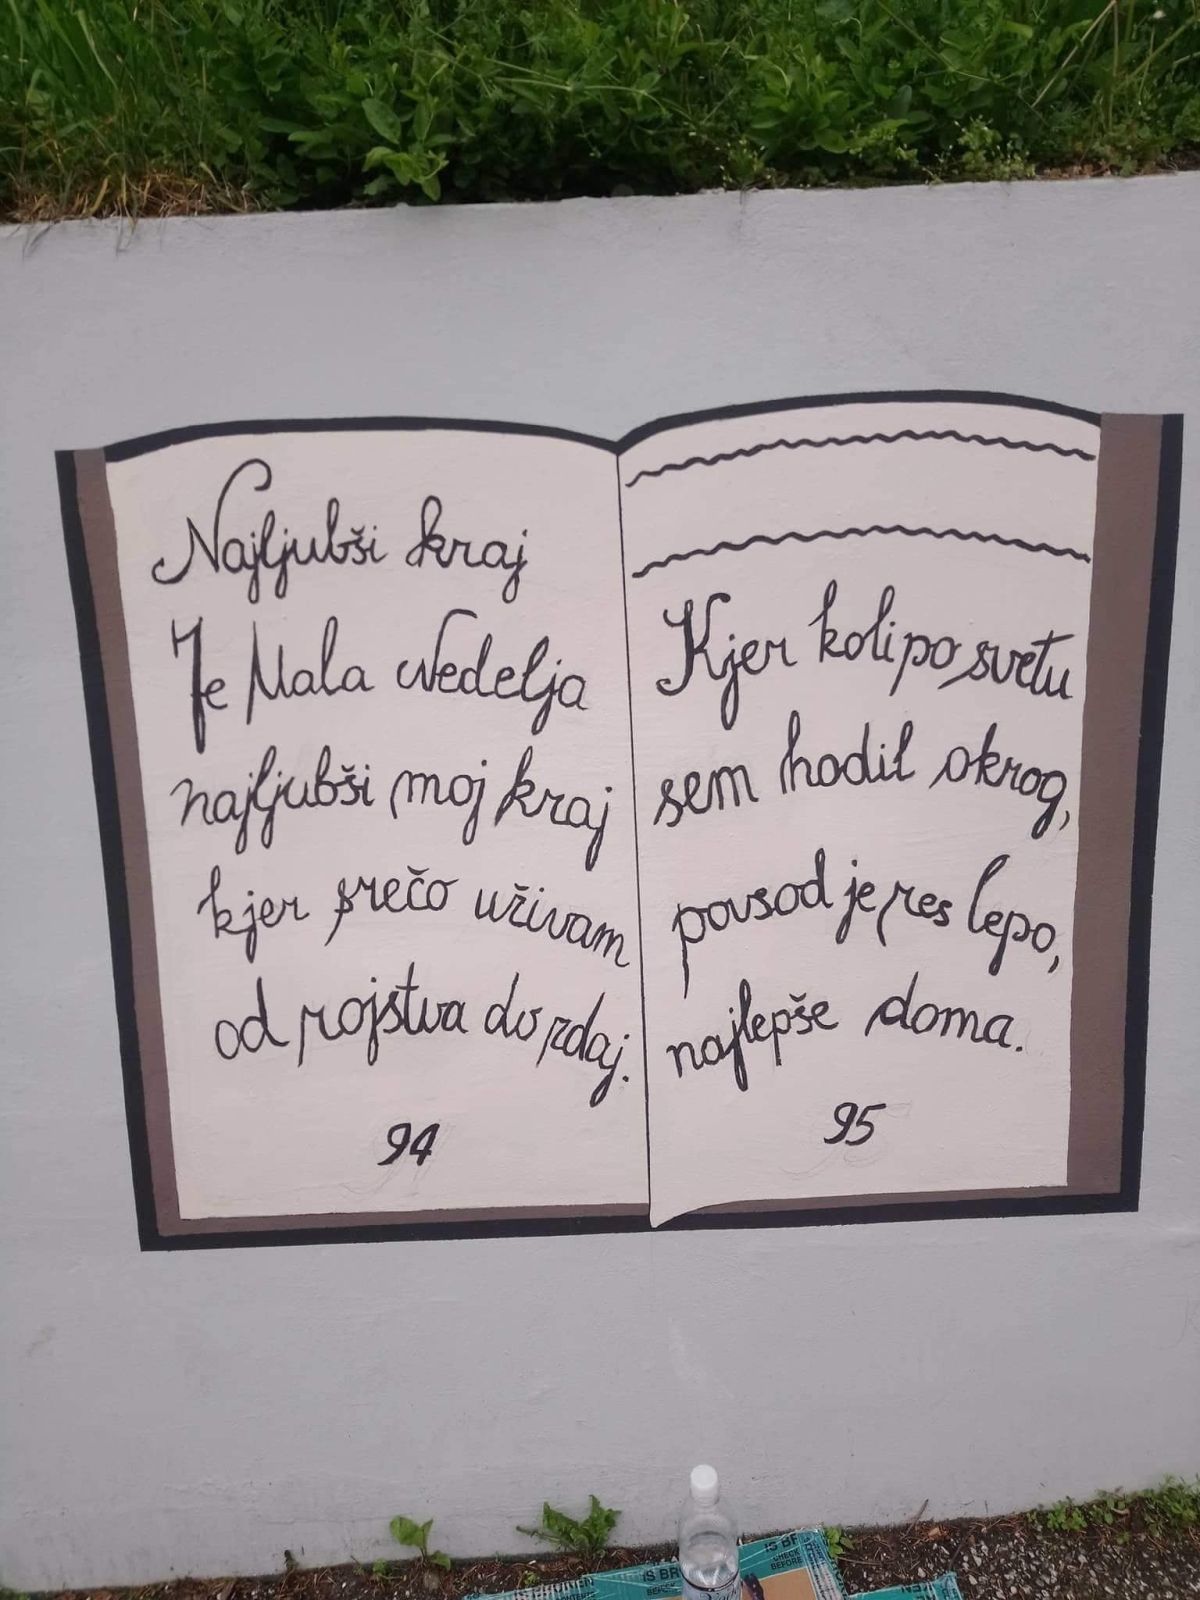 Najljubši kraj
Je Mala Nedelja
najljubši moj kraj
kjer srečo uživam
od rojstva do zdaj.
94
Kjer koli po svetu
sem hodil okrog,
povsod je res lepo,
najlepše doma.
95
IS BR
CHECK
BEFORE
IS BR